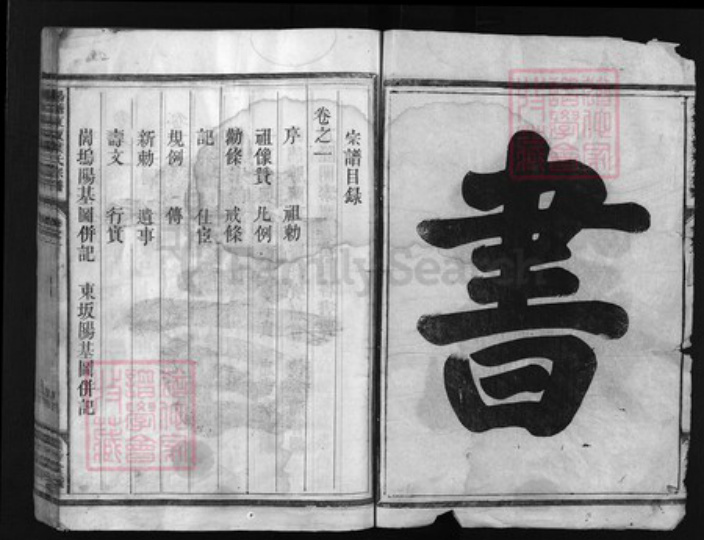 書
宗譜目錄
卷之一
序 祖勅
祖像贊 凡例
勸條 戒條
記 仕宦
規例 傳
新勅 遺事
壽文 行實
崗塢陽基圖併記 東坂陽基圖併記
FamilySearch